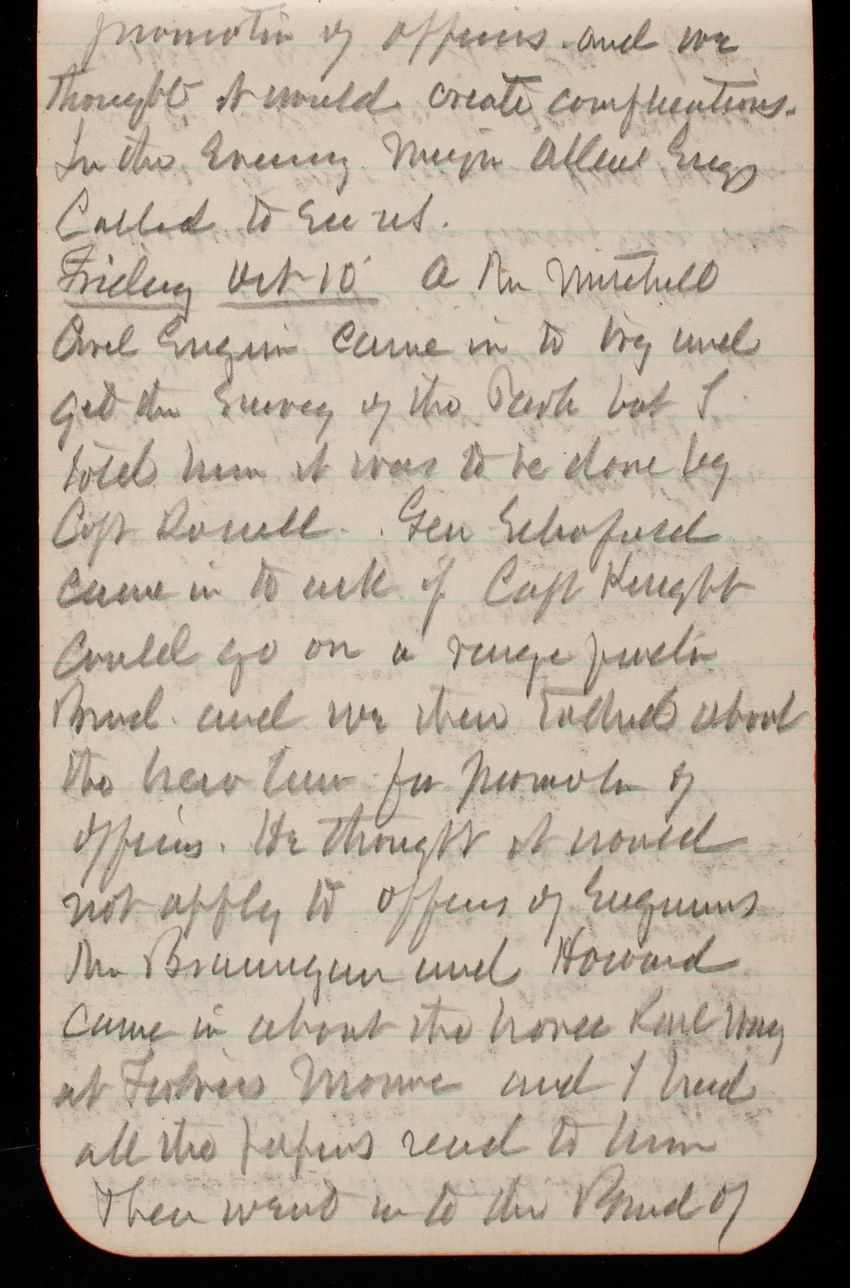 promotion of officers. and we
thought it would create complications.
In the Evening Major Allen Engs
Called to see us.
Friday Oct 10 A Mr Mitchell
Civil Engin came in to try and
get the Survey of the Park but I
told him it was to be done by
Capt Rossell. Gen Schofield
came in to ask if Capt Knight
Could go on a range finder
Board and we then talked about
the new law for promotion of
officers. He thought it would
not apply to officers of Engineers
Mr Brannigan and Howard
came in about the horse Rail Way
at Fortress Monroe and I had
all the papers read to him
Then went in to the Board of